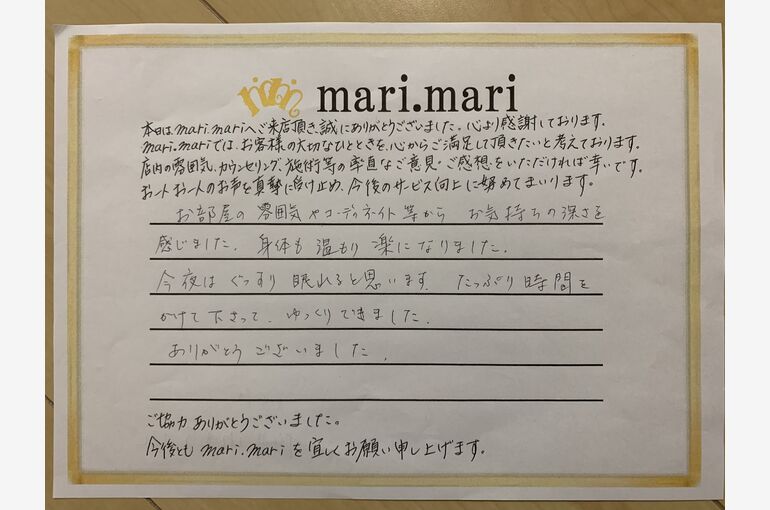 mari.mari
本日はmari.mariへご来店頂き、誠にありがとうございました。心より感謝しております。
mari.mariでは、お客様の大切なひとときを、心からご満足して頂きたいと考えております。
店内の雰囲気、カウンセリング、施術等の率直なご意見・ご感想をいただければ幸いです。
お一人お一人のお声を真摯に受け止め、今後のサービス向上に努めてまいります。
お部屋の雰囲気やコーディネイト等から お気持ちの深さを
感じました。身体も温もり楽になりました。
今夜はぐっすり眠れると思います。たっぷり時間を
かけて下さって、ゆっくりできました。
ありがとうございました。
ご協力ありがとうございました。
今後ともmari.mariを宜しくお願い申し上げます。